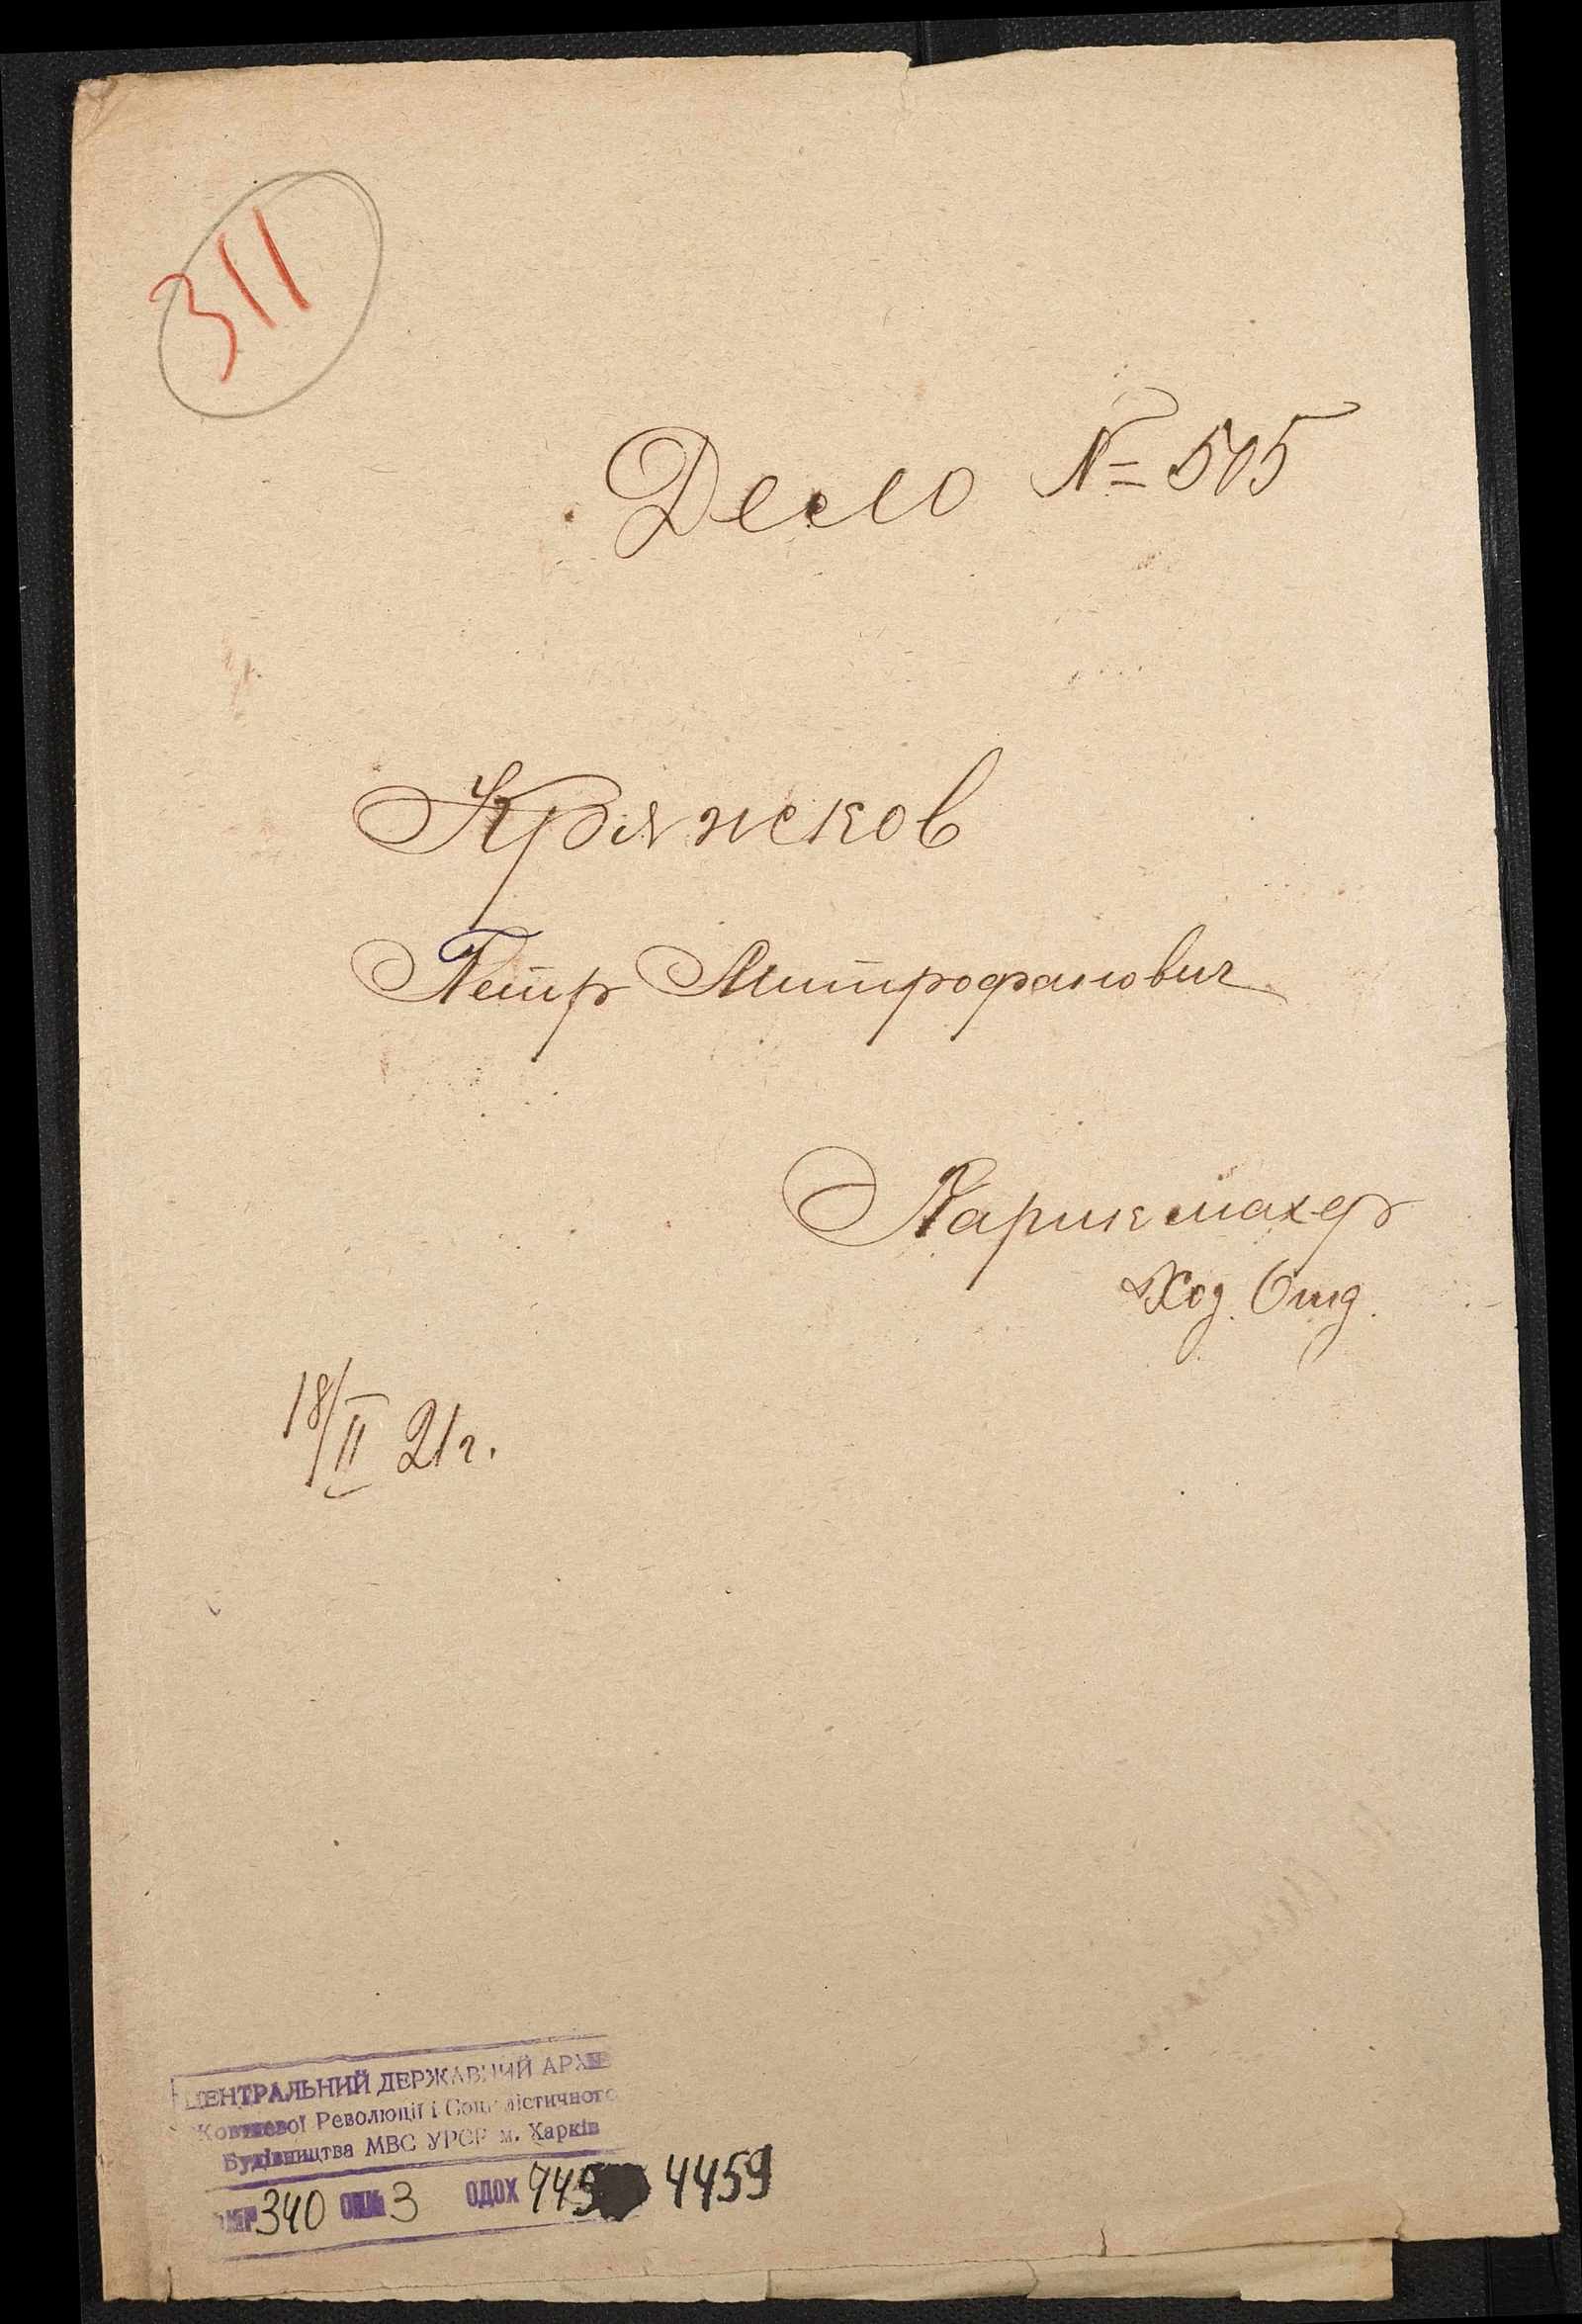 311
Дело № 505
Кряжков
Петр Митрофанович
Парикмахер
Хоз. Отд.
18/II 21 г.
ЦЕНТРАЛЬНИЙ ДЕРЖАВНИЙ АРХІВ
Жовтневої Революції і Соціалістичного
Будівництва МВС УРСР м. Харків
340 3 ОДОХ 4459